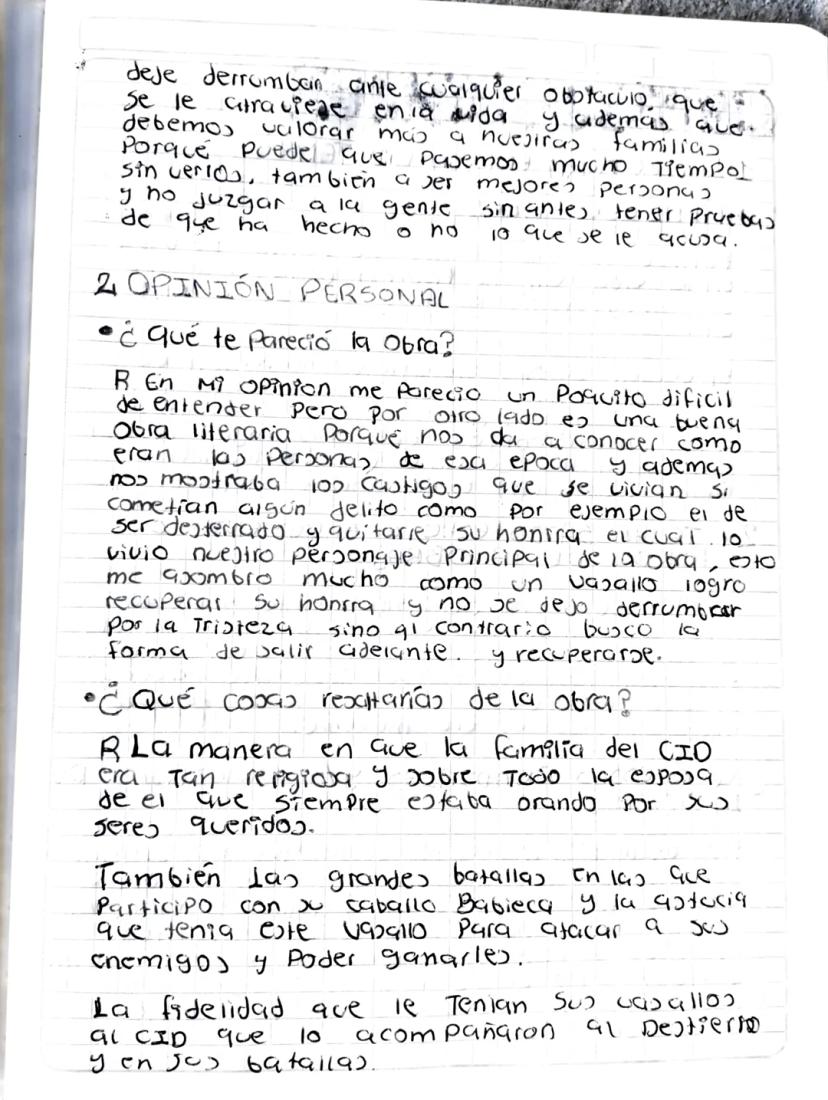 deje derrumbar ante cualquier obstaculo que
se le atraviese en la vida y ademas que
debemos valorar mas a nuestras familias
Porqué puede que pasemos mucho Tiempo
sin verlos, también a ser mejores personas
y no juzgar a la gente sin antes tener pruebas
de que ha hecho o no lo que se le acusa.
2 OPINIÓN PERSONAL
• ¿Qué te Pareció la Obra?
R En Mi opinion me Parecio un Poquito dificil
de entender pero por otro lado es una buena
Obra literaria Porqué nos da a conocer como
eran las Personas de esa epoca y ademas
nos mostraba los Castigos que se vivian si
cometían algún delito como por ejemplo el de
ser desterrado y quitarle su honrra el cual lo
vivio nuestro personaje Principal de la obra, esto
me asombro mucho como un vasallo logro
recuperar su honrra y no se dejo derrumbar
por la Tristeza sino al contrario busco la
forma de salir adelante. y recuperarse.
• ¿Qué cosas resaltarías de la obra?
R La manera en que la familia del CID
era Tan religiosa y sobre Todo la esposa
de el que siempre estaba orando Por sus
seres queridos.
También Las grandes batallas en las que
Participo con su caballo Babieca y la astucia
que tenia este vasallo Para atacar a sus
enemigos y Poder ganarles.
La fidelidad que le Tenian sus vasallos
al CID que lo acompañaron al Destierro
y en sus batallas.